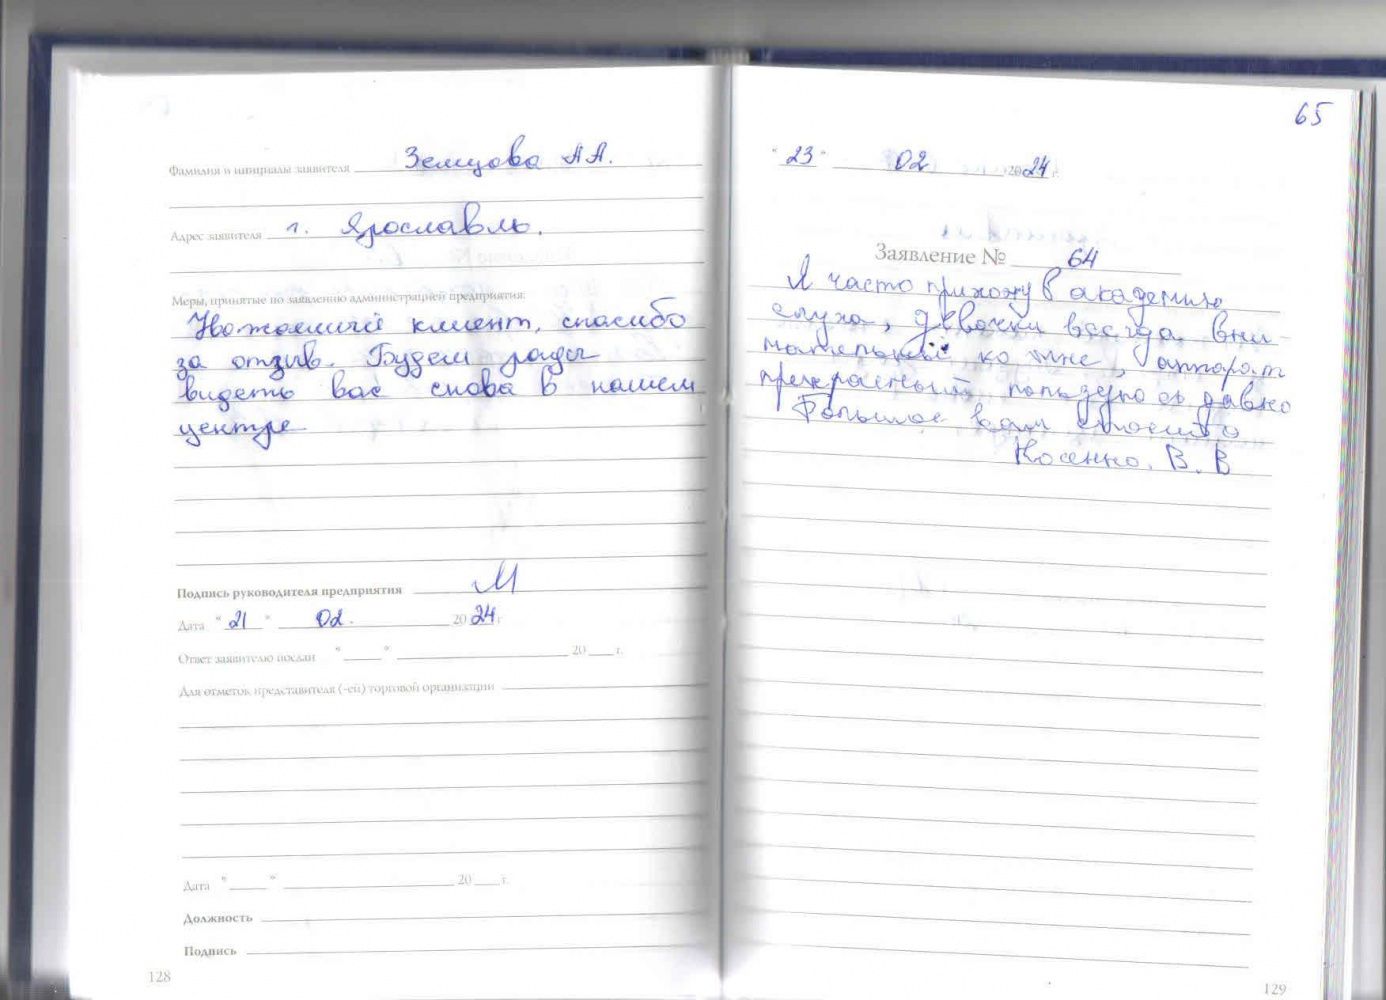 Фамилия и инициалы заявителя Земцова А А.
Адрес заявителя г. Ярославль.
Меры, принятые по заявлению администрацией предприятия:
Уважаемый клиент, спасибо
за отзыв. Будем рады
видеть вас снова в нашем
центре
Подпись руководителя предприятия
Дата "21" 02. 2024г.
Ответ заявителю послан "___" ___ 20___г.
Для отметок представителя (-ей) торговой организации
Дата "___" ___ 20___г.
Должность
Подпись
128
65
"23" 02 2024г.
Заявление № 64
Я часто прихожу в академию
слуха, девочки всегда вни-
мательные ко мне, аппарат
прекрасный, пользуюсь давно
Большое вам спасибо
Косенко. В. В
129